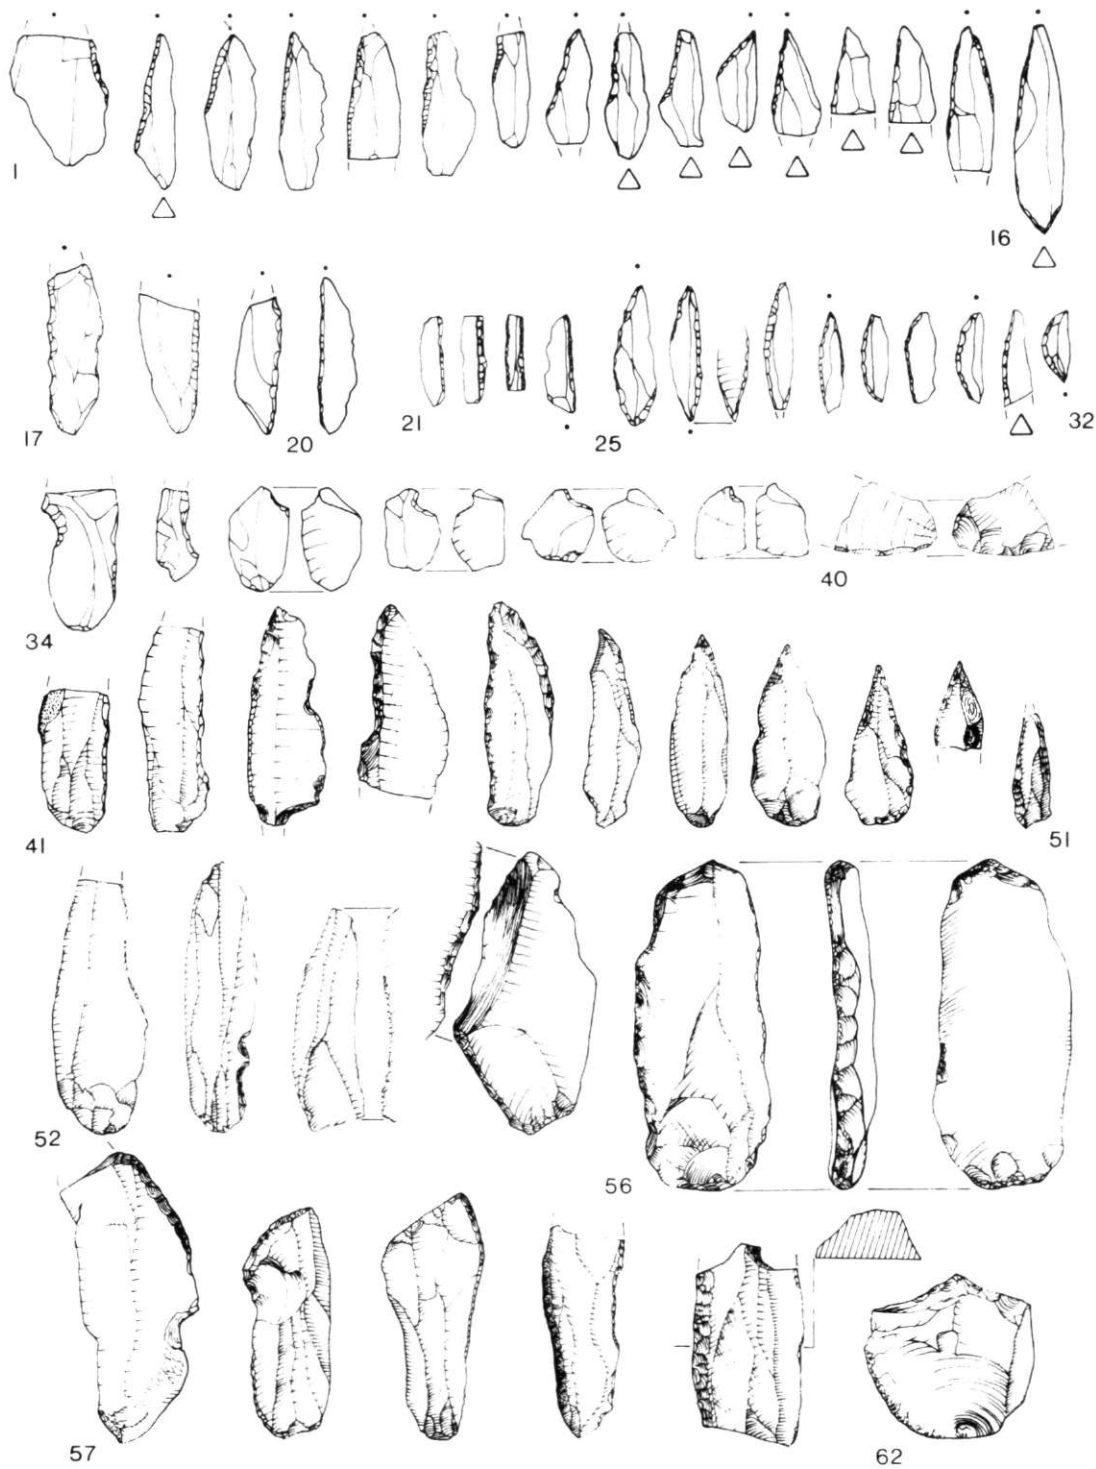 1
16
17
20
21
25
32
34
40
41
51
52
56
57
62